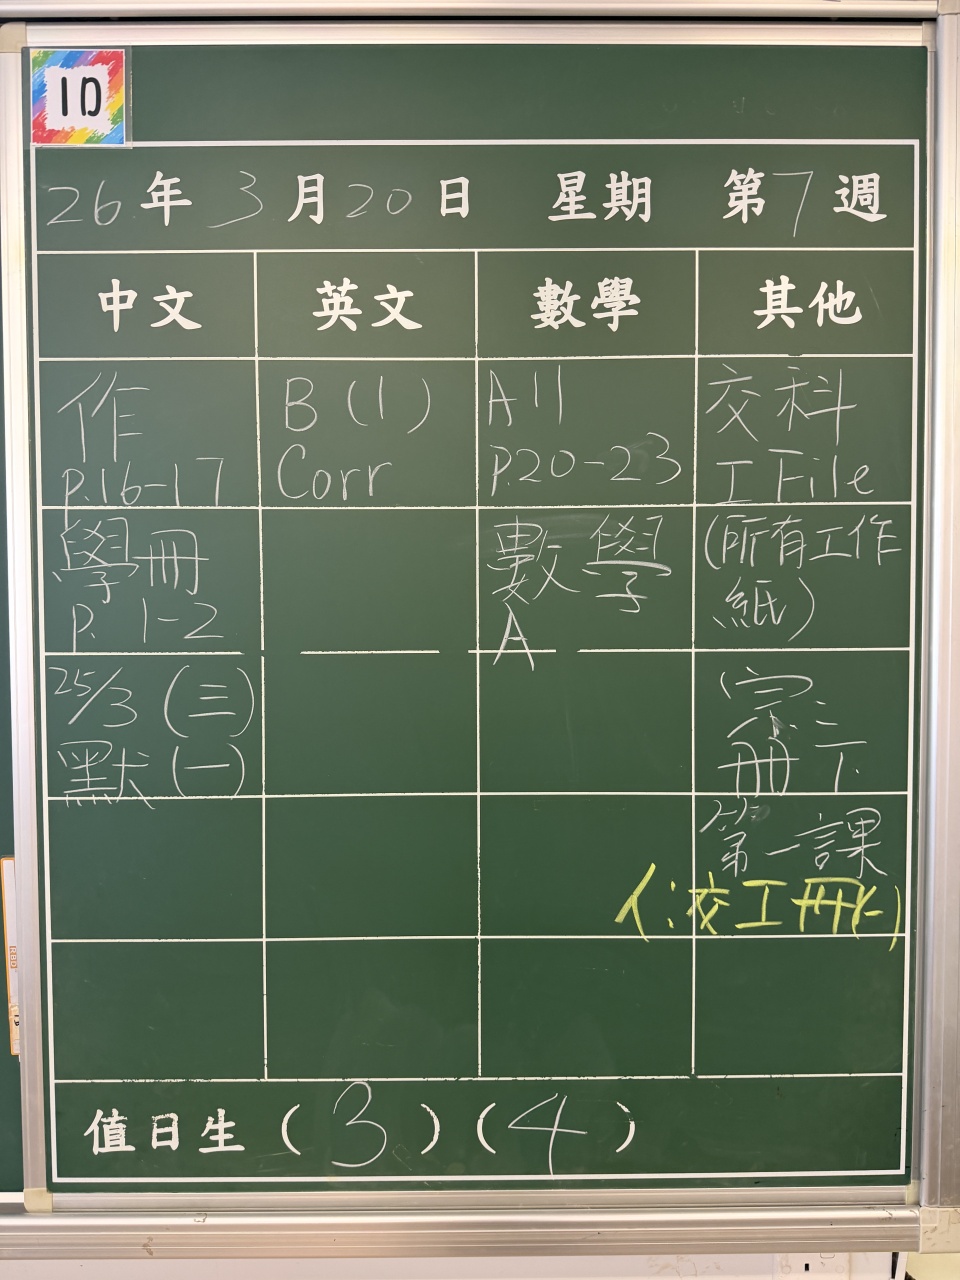 1D
26年3月20日 星期 第7週
中文 英文 數學 其他
作
p.16-17
學冊
p. 1-2
25/3 (三)
默(一)
B(1)
Corr
All
p.20-23
數學
A
交科
工File
(所有工作
紙)
宗:
冊下
第一課
亻:交工冊(-)
值日生(3)(4)